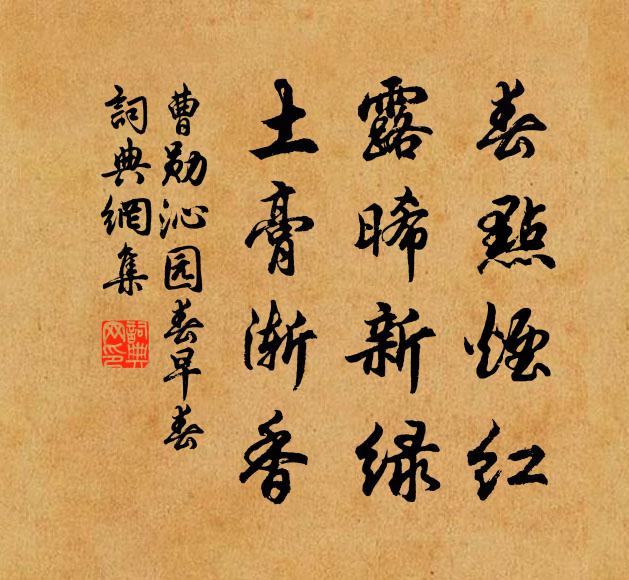 春點煙紅
露晞新绿
土膏渐香
曹勋沁园春早春
詞典網集
詞典
网印